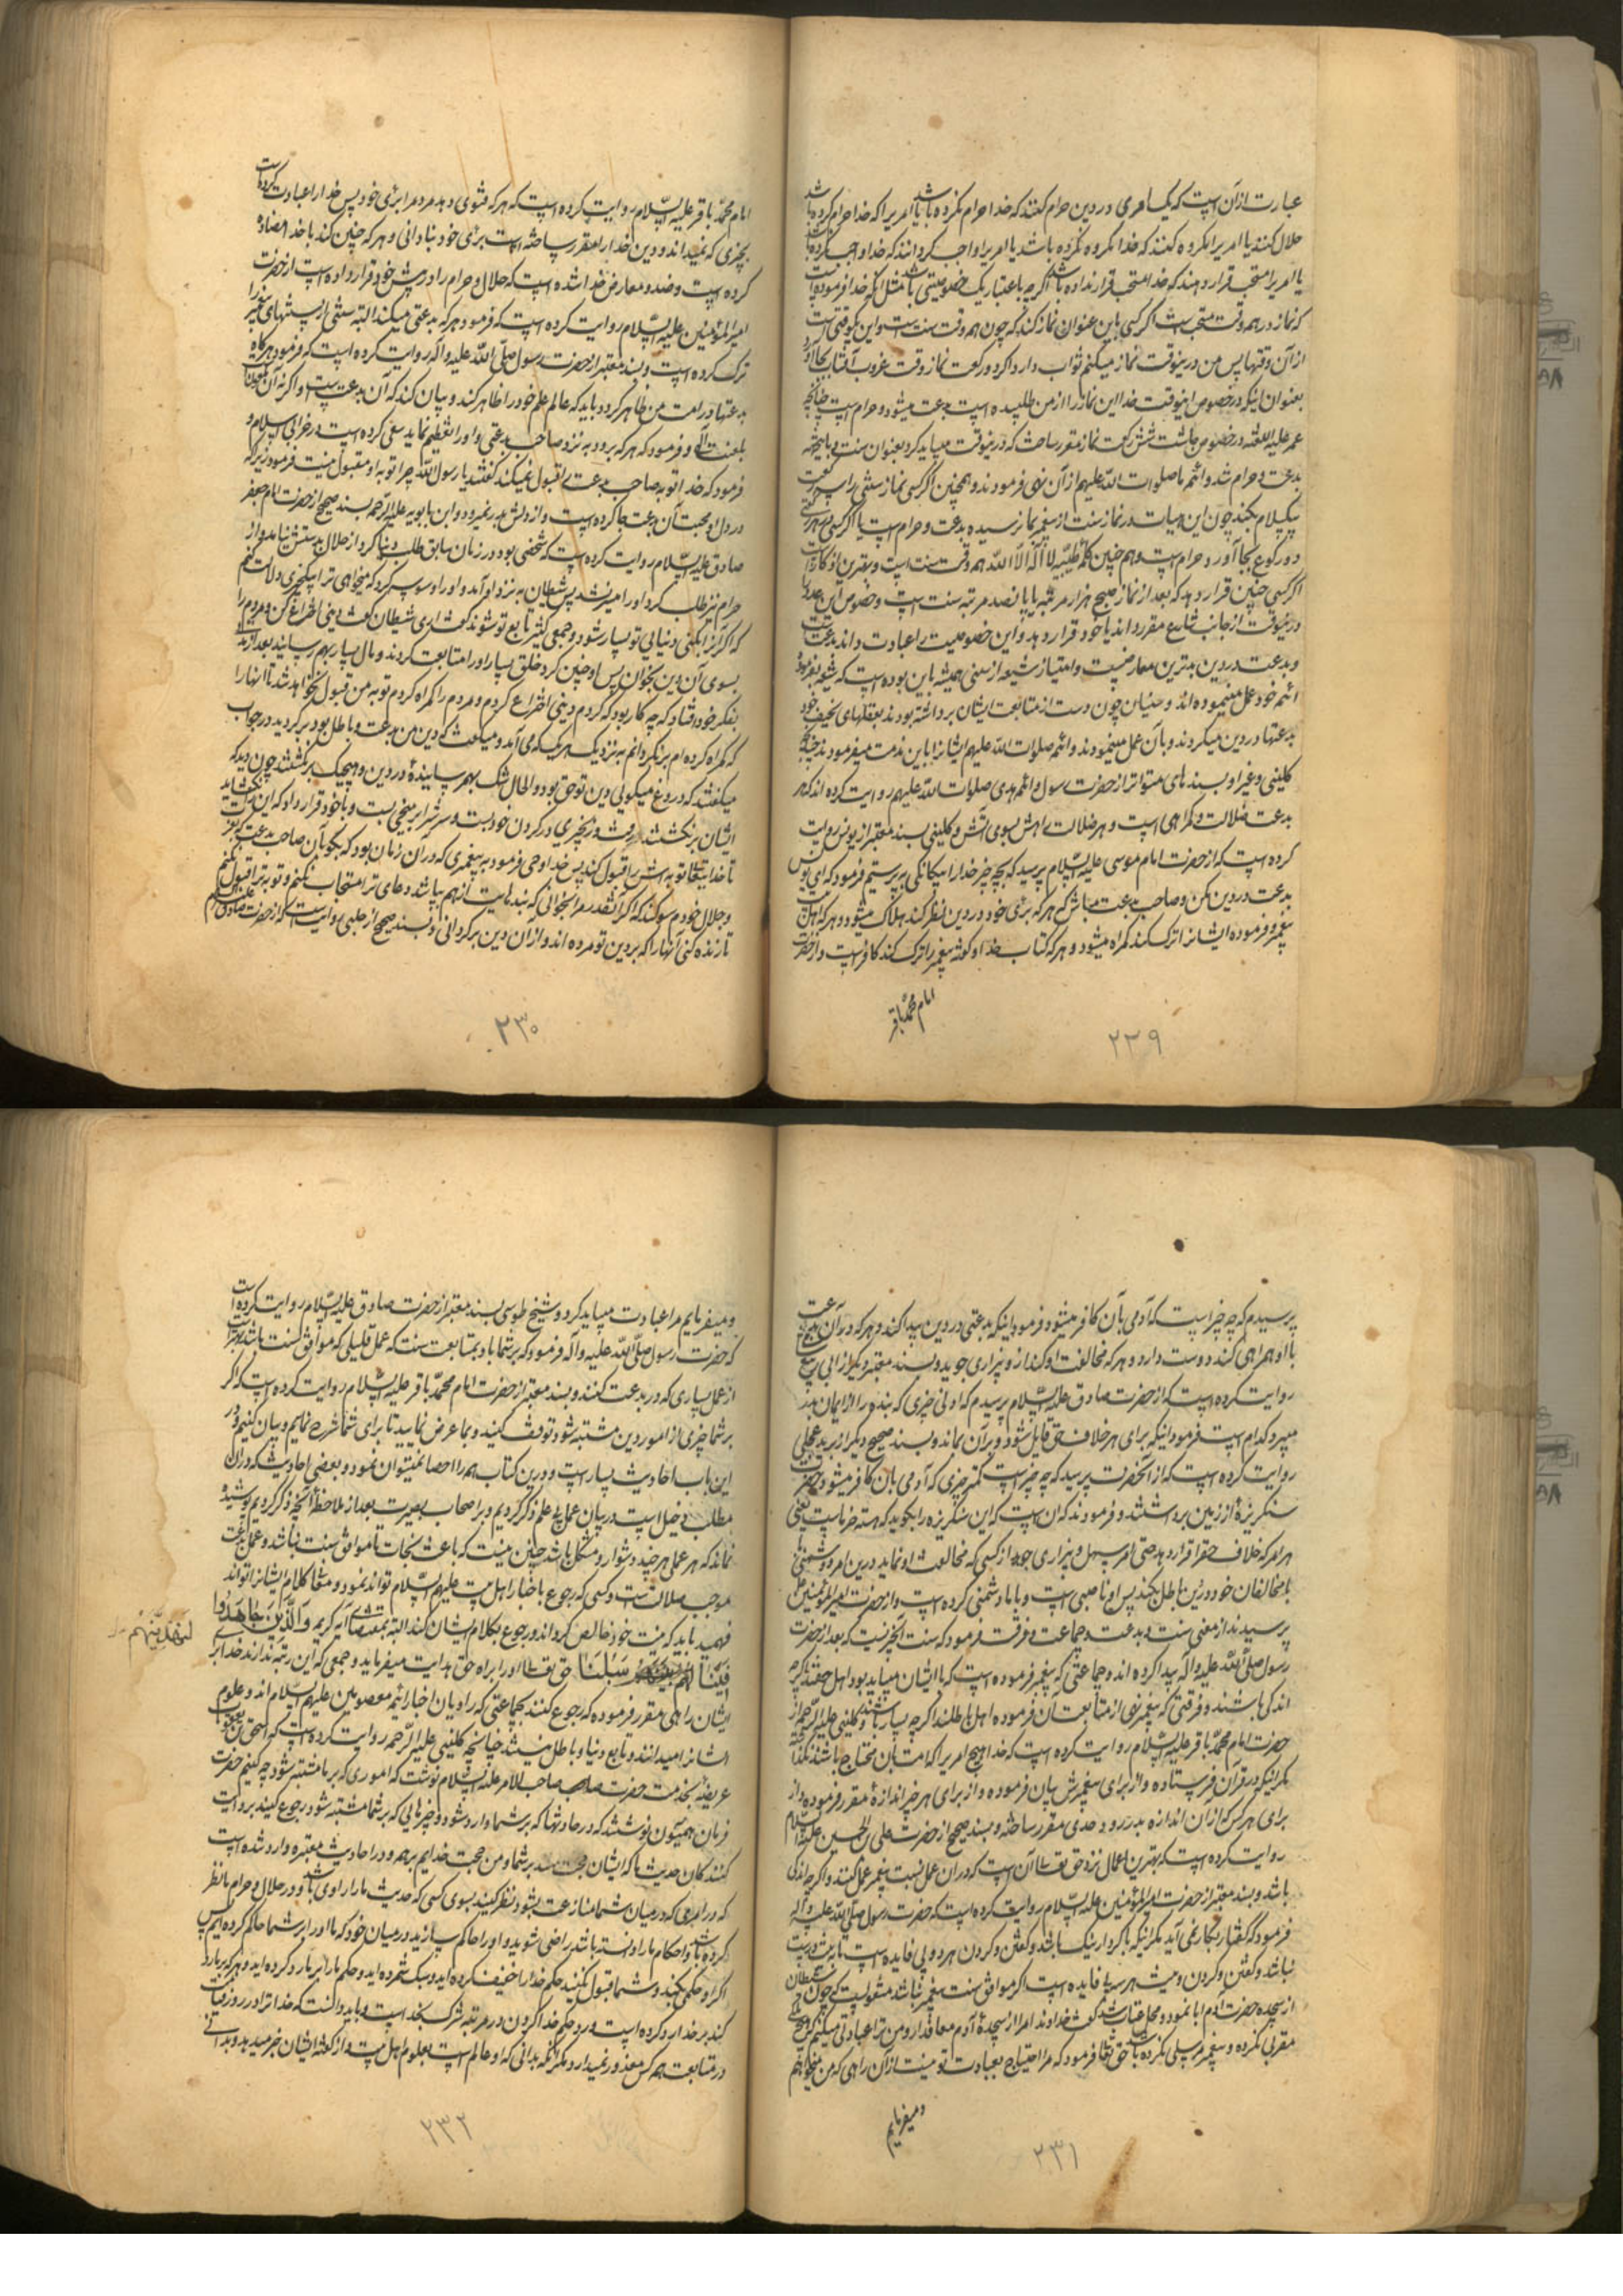 عبارت از آن است که یک امری در دین حرام کنند که خدا حرام نکرده باشد یا امریرا که خدا حرام کرده باشد
حلال کنند یا امریرا مکروه کنند که خدا مکروه نکرده باشد یا امریرا واجب گردانند که خدا واجب نکرده باشد
یا امریرا مستحب قرار دهند که خدا مستحب قرار نداده باشد اگرچه باعتبار یک خصوصیتی باشد مثل آنکه خدا فرموده است
که نماز در همه وقت مستحب است اگر کسی باین عنوان نماز کند که چون همه وقت سنت است و این یکوقتی است
از آن وقتها پس من درینوقت نماز میکنم ثواب دارد و اگر دو رکعت نماز وقت غروب آفتاب بجا آورد
بعنوان اینکه در خصوص اینوقت خدا این نماز را از من طلبیده است بدعت میشود و حرام است چنانچه
عمر علیه اللعنه در خصوص چاشت شش رکعت نماز مقرر ساخت که درینوقت میباید کرد بعنوان سنت و باینجهة
بدعت و حرام شد و ائمه ما صلوات الله علیهم از آن نهی فرمودند و همچنین اگر کسی نماز سنتی را سه رکعت
بیک سلام بکند چون این هیات در نماز سنت از پیغمبر بما نرسیده بدعت و حرام است یا اگر کسی در هر رکعتی
دو رکوع بجا آورد حرام است و هم چنین کلمه طیبه لا اله الا الله همه وقت سنت است و بهترین اذکار است
اگر کسی چنین قرار دهد که بعد از نماز صبح هزار مرتبه یا پانصد مرتبه سنت است و خصوص این عدد را
درینوقت از جانب شارع مقرر داند یا خود قرار دهد و این خصوصیت را عبادت داند بدعتست
و بدعت در دین بدترین معاصیست و امتیاز شیعه از سنی همیشه باین بوده است که شیعه بفرموده
ائمه خود عمل مینموده‌اند و سنیان چون دست از متابعت ایشان برداشته بودند بعقلهای نحیف خود
بدعتها در دین میکردند و بآن عمل مینمودند و ائمه صلوات الله علیهم ایشانرا باین مذمت میفرمودند چنانچه
کلینی و غیر او بسندهای متواتر از حضرت رسول و ائمه هدی صلوات الله علیهم روایت کرده‌اند که هر
بدعت ضلالت و گمراهی است و هر ضلالت راهش بسوی آتش و کلینی بسند معتبر از یونس روایت
کرده است که از حضرت امام موسی علیه السلام پرسید که بچه چیز خدا را بیگانگی بپرستیم فرمود که ای یونس
بدعت در دین مکن و صاحب بدعت مباش که هر که برأی خود در دین نظر کند هلاک میشود و هر که اهل بیت
پیغمبر و فرموده ایشانرا ترک کند گمراه میشود و هر که کتاب خدا و گفته پیغمبر را ترک کند کافر است و از حضرت
امام محمد باقر
۲۲۹
امام محمد باقر علیه السلام روایت کرده است که هر که فتوی دهد مردم را برأی خود پس خدا را عبادت کرده است
بچیزی که نمیداند و دین خدا را مقرر ساخته است برأی خود بنادانی و هر که چنین کند با خدا مضاده
کرده است و ضد و معارض خدا شده است که حلال و حرام را در پیش خود قرار داده است از حضرت
امیرالمؤمنین علیه السلام روایت کرده است که فرمود هر که بدعتی میکند البته سنتی از سنتهای پیغمبر را
ترک کرده است و بسند معتبر از حضرت رسول صلی الله علیه و اله روایت کرده است که فرمود هر گاه
بدعتها در امت من ظاهر گردد باید که عالم علم خود را ظاهر کند و بیان کند که آن بدعت است و اگر نه آن ملعونست
بلعنت الهی و فرمود که هر که برود به نزد صاحب بدعتی و او را تعظیم نماید سعی کرده است در خرابی اسلام و
فرمود که خدا توبه صاحب بدعت را قبول نمیکند گفتند یا رسول الله چرا توبه او مقبول نیست فرمود زیرا که
در دل او محبت آن بدعت جا کرده است و از دلش بدر نمیرود و ابن بابویه علیه الرحمه بسند صحیح از حضرت امام جعفر
صادق علیه السلام روایت کرده است که شخصی بود در زمان سابق طلب دنیا کرد از حلال بدستش نیامد و از
حرام نیز طلب کرد او را میسر نشد پس شیطان به نزد او آمد و او را وسوسه کرد که میخواهی ترا بیک چیزی دلالت کنم
که اگر آنرا بکنی دنیای تو بسیار شود و جمعی کثیر تابع تو شوند گفت اری شیطان گفت دینی اختراع کن و مردم را
بسوی آن دین بخوان پس او چنین کرد و خلق بسیار او را متابعت کردند و مال بسیار بهم رسانید بعد از مدتی
بفکر خود افتاد که چه کار بود که کردم دینی اختراع کردم و مردم را گمراه کردم توبه من قبول نخواهد شد تا انها را
که گمراه کرده‌ام بر نگردانم به نزد یک یک می آمد و میگفت که دین من بدعت و باطل بود برگردید در جواب
میگفتند که دروغ میگویی دین تو حق بود و الحال شک بهم رسانیده در دین و هیچیک بر نگشتند چون دید که
ایشان بر نگشتند رفت و زنجیری در گردن خود بست و سرش را بر میخی بست و با خود قرار داد که این را نگشاید
تا خدای تعالی توبه‌اش را قبول کند پس خدا وحی فرمود به پیغمبری که در آن زمان بود که بگو بآن صاحب بدعت که بعزت
و جلال خودم سوگند که اگر آنقدر مرا بخوانی که بندهایت از هم بپاشد دعای ترا مستجاب نکنم و توبه ترا قبول نکنم
تا زنده کنی آنها را که بر دین تو مرده‌اند و از ان دین برگردانی و بسند صحیح از حلبی روایت است که از حضرت صادق علیه السلام
۲۳۰
پرسیدم که چه چیز است که آدمی بآن کافر میشود فرمود اینکه بدعتی در دین پیدا کند و هر که در آن بدعت
با او همراهی کند دوست دارد و هر که مخالفت او کند از او بیزاری جوید و بسند معتبر دیگر از ابی ربیع
روایت کرده است که از حضرت صادق علیه السلام پرسیدم که ادنی چیزی که بنده را از ایمان بدر
میبرد کدام است فرمود اینکه برای هر خلاف حقی قایل شود و بر آن بماند و بسند صحیح دیگر از برید عجلی
روایت کرده است که از آنحضرت پرسید که چه چیز است کمتر چیزی که آدمی بان کافر میشود حضرت
سنگریزه از زمین برداشتند و فرمودند که ان است که این سنگریزه را بگوید که هسته خرماست یعنی
هر امر که خلاف حق را قرار دهد حتی امر سهل و بیزاری جوید از کسی که مخالفت او نماید درین امر و دشمنی
با مخالفان خود در دین باطل بکند پس او ناصبی است و با ما دشمنی کرده است و از حضرت امیرالمؤمنین
پرسیدند از معنی سنت و بدعت و جماعت و فرقت فرمود که سنت آنچیزیست که بعد از حضرت
رسول صلی الله علیه و آله پیدا کرده‌اند و جماعتی که پیغمبر فرموده است که با ایشان میباید بود اهل حقند اگرچه
اندکی باشند و فرقتی که پیغمبر نهی از متابعت آن فرموده اهل باطلند اگرچه بسیار باشند و کلینی علیه الرحمه از
حضرت امام محمد باقر علیه السلام روایت کرده است که خدا هیچ امریرا که امت بآن محتاج باشند نگذاشته
مگر اینکه در قرآن فرستاده و از برای پیغمبرش بیان فرموده و از برای هر چیز اندازه مقرر فرموده و از
برای هر کس که از آن اندازه بدر رود حدی مقرر ساخته و بسند صحیح از حضرت علی بن الحسین علیه السلام
روایت کرده است که بهترین اعمال نزد حق تعالی آن است که در ان عمل بسنت پیغمبر عمل کنند و اگر چه اندکی
باشد و بسند معتبر از حضرت امیرالمؤمنین علیه السلام روایت کرده است که حضرت رسول صلی الله علیه و آله
فرمود که گفتار بکار نمی آید مگر اینکه با کردار نیک باشد و گفتن و کردن هر دو بی فایده است تا نیت درست
نباشد و گفتن و کردن و نیت هر سه بیفایده است اگر موافق سنت پیغمبر نباشد منقولست که چون شیطان
از سجده حضرت آدم ابا نمود و محل عتاب شد گفت خداوندا مرا از سجده آدم معاف دار و من ترا عبادتی میکنم که هیچ ملک
مقربی نکرده و پیغمبر مرسلی نکرده باشد حق تعالی فرمود که مرا احتیاج بعبادت تو نیست از آن راهی که من میخواهم
و میفرمایم
۲۳۱
و میفرمایم مرا عبادت میباید کرد و شیخ طوسی بسند معتبر از حضرت صادق علیه السلام روایت کرده است
که حضرت رسول صلی الله علیه و آله فرمود که بر شما باد بمتابعت سنت که عمل قلیلی که موافق سنت باشد بهتر است
از عمل بسیاری که در بدعت کنند و بسند معتبر از حضرت امام محمد باقر علیه السلام روایت کرده است که اگر
بر شما چیزی از امور دین مشتبه شود توقف کنید و بما عرض نمایید تا برای شما شرح نماییم و بیان کنیم و در
این باب احادیث بسیار است و درین کتاب همه را احصا نمیتوان نمود و بعضی احادیث که در ان
مطلب دخیل است در بیان عمل بیعلم ذکر کردیم و بر اصحاب بصیرت بعد از ملاحظه آنچه ذکر کردیم پوشیده
نماند که هر عملی هر چند دشوار و مشکل باشد چنین نیست که باعث نجات تا موافق سنت نباشد و عمل بدعت
موجب ضلالتست و کسی که رجوع باخبار اهل بیت علیهم السلام تواند نمود و مفاد کلام ایشانرا تواند
فهمید باید که نیت خود خالص گرداند و رجوع بکلام ایشان کند البته بمقتضای آیه کریم وَالَّذِینَ جَاهَدُوا
فِینَا لنهدینهم سُبُلَنَا حق تعالی او را براه حق هدایت میفرماید و جمعی که این رتبه ندارند خدا برای
لَنَهْدِیَنَّهُمْ
ایشان راهی مقرر فرموده که رجوع کنند بجماعتی که راویان اخبار ائمه معصومین علیهم السلام‌اند و علوم
ایشانرا میدانند و تابع دنیا و باطل نیستند چنانچه کلینی علیه الرحمه روایت کرده است که اسحق بن یعقوب
عریضه بخدمت حضرت صاحب الامر علیه السلام نوشت که اموری که بر ما مشتبه شود چه کنیم حضرت
فرمان همیون نوشتند که در حادثها که بر شما وارد شود و چیزهایی که بر شما مشتبه شود رجوع کنید بروایت
کنندگان حدیث ما که ایشان حجت منند بر شما و من حجت خدایم بر همه و در احادیث معتبره وارد شده است
که در امری که در میان شما منازعت بشود نظر کنید بسوی کسی که حدیث ما را راوی باشد و در حلال و حرام ما نظر
کرده باشد و احکام ما را دانسته باشد راضی شوید و او را حاکم سازید در میان خود که ما او را بر شما حاکم کرده‌ایم پس
اگر او حکمی بکند و شما قبول نکنید حکم خدا را خفیف کرده‌اید و سبک شمرده‌اید و حکم ما را بر ما رد کرده‌اید و هر که بر ما رد
کند بر خدا رد کرده است و رد حکم خدا کردن در مرتبه شرک بخداست و باید دانست که خدا ترا در روز قیامت
در متابعت همه کس معذور نمیدارد مگر آنکه بدانی که او عالم است بعلوم اهل بیت و از گفته ایشان خبر میدهد و بدانی
۲۳۲